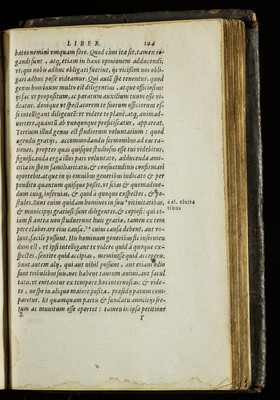 LIBER. 144
batos nemini vnquam fore. Quod cum ita sit, tamen ro-
gandi sunt, atq; etiam in hanc opinionem adducendi,
vt, qui nobis adhuc obligati fuerint, iis vicissim nos obli-
gari adhuc posse videamur. Qui autē spe tenentur, quod
genus hominum multo est diligentius, atque officiosius:
iis fac vt propositum, ac paratum auxilium tuum esse vi-
deatur, denique vt spectatorem te suorum officiorum es-
se intelligant diligentē: vt videre te plane, atq; animad-
uertere, quantū ab vnoquoque proficiscatur, appareat.
Tertium illud genus est studiorum voluntarium: quod
agendis gratiis, accommodandis sermonibus ad eas ra-
tiones, propter quas quisque studiosus esse tui videbitur;
significanda erga illos pari voluntate, adducenda ami-
citia in spem familiaritatis, & consuetudinis confirmari
oportebit. atque in iis omnibus generibus iudicato, & per
pendito quantum quisque posset, vt scias & quemadmo-
dum cuiq; inseruias, & quid à quoque exspectes, & po-
stules. Sunt enim quidam homines in suis vicinitatibus,
& municipiis gratiosi: sunt diligentes, & copiosi: qui et-
iam si antea non studuerunt huic gratiæ, tamen ex tem
pore elaborare eius causa, cui causa debent, aut vo-
lunt, facile possunt. His hominum generibus sic inseruien
dum est, vt ipsi intelligant te videre quid à quoque ex-
spectes, sentire quid accipias, meminisse quid acceperis.
Sunt autem alij, qui aut nihil possunt, aut etiam odio
sunt tribulibus suis, nec habent tantum animi, aut facul
tatis, vt enitantur ex tempore. hos internoscas: & vide-
to, ne spe in aliquo maiore posita, præsidij parum com-
paretur. Et quamquam partis & fundatis amicitiis fre-
tum ac munitum esse oportet: tamen in ipsa petitione
T